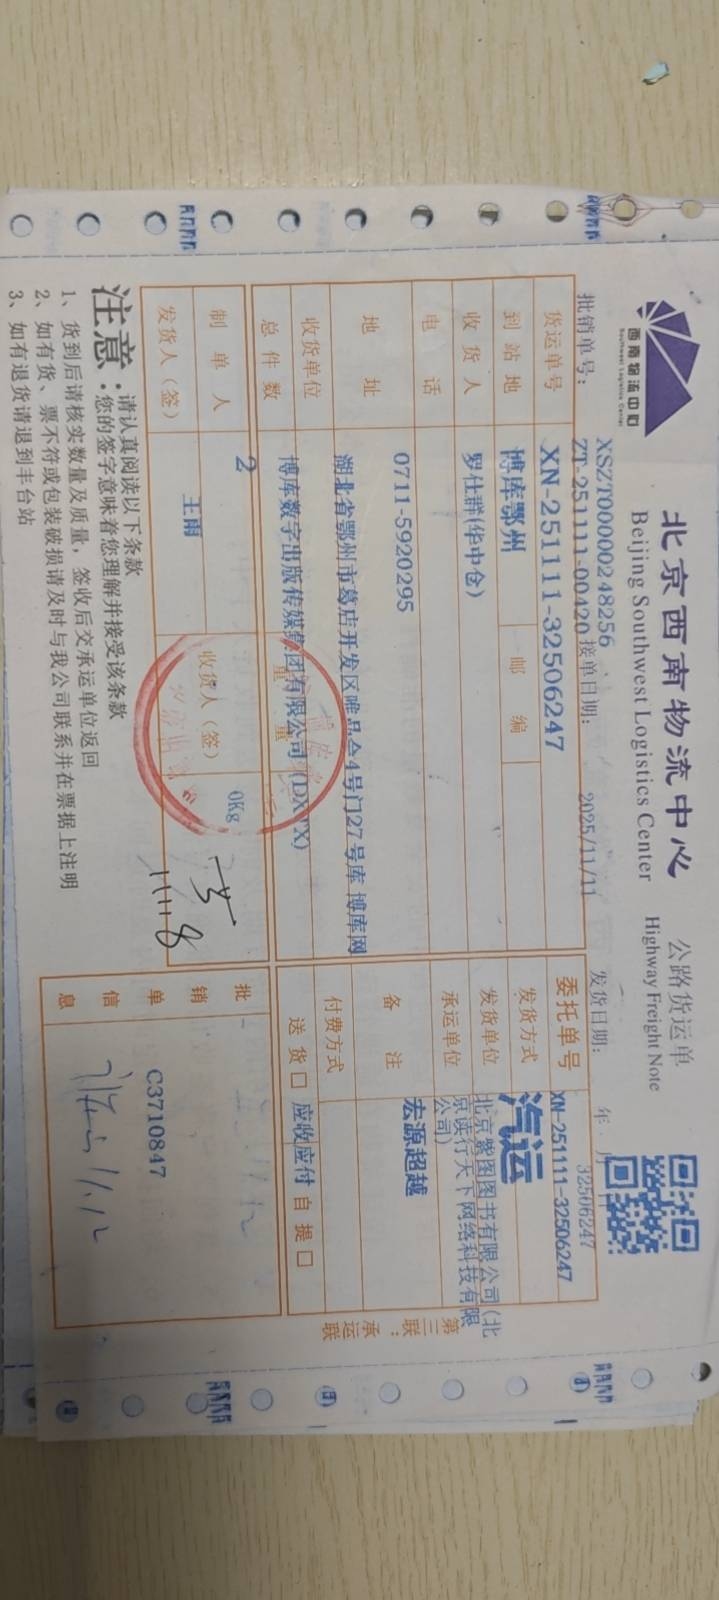 西南物流中心
Southwest Logistics Center
北京西南物流中心
Beijing Southwest Logistics Center
公路货运单
Highway Freight Note
32506247
XSZT00000248256
批销单号：
ZT-251111-00420
接单日期：
2025/11/11
发货日期：
年
月
货运单号
XN-251111-32506247
委托单号
XN-251111-32506247
到站地
博库鄂州
邮编
发货方式
汽运
收货人
罗仕群(华中仓)
发货单位
北京紫图图书有限公司(北
京读行天下网络科技有限
公司)
电话
0711-5920295
承运单位
宏源超越
地址
湖北省鄂州市葛店开发区唯品会4号门27号库 博库网
备注
收货单位
博库数字出版传媒集团有限公司(DXWX)
付费方式
总件数
2
重量
0Kg
送货□
应收应付
自提□
制单人
王雨
收货人（签）
发货人（签）
批销单信息
C3710847
11.12
第三联：承运联
注意：
请认真阅读以下条款
您的签字意味着您理解并接受该条款
1、货到后请核实数量及质量，签收后交承运单位返回
2、如有货、票不符或包装破损请及时与我公司联系并在票据上注明
3、如有退货请退到丰台站